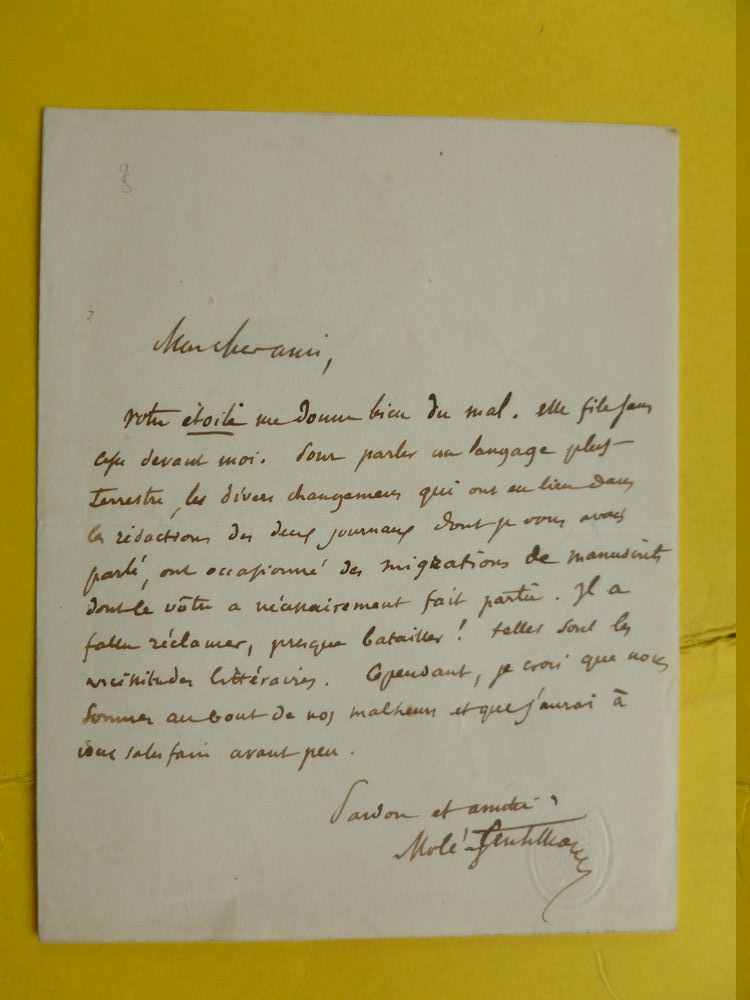 Mon cher ami,
Votre étoile me donne bien du mal. elle file sans
cesse devant moi. Pour parler un langage plus
terrestre, les divers changemens qui ont eu lieu dans
les rédactions des deux journaux dont je vous avais
parlé, ont occasionné des migrations de manuscrits
dont le vôtre a nécessairement fait partie. Il a
fallu réclamer, presque batailler ! telles sont les
vicissitudes littéraires. Cependant, je crois que nous
sommes au bout de nos malheurs et que j'aurai à
vous satisfaire avant peu.
Pardon et amitié
Molé-Gentilhomme